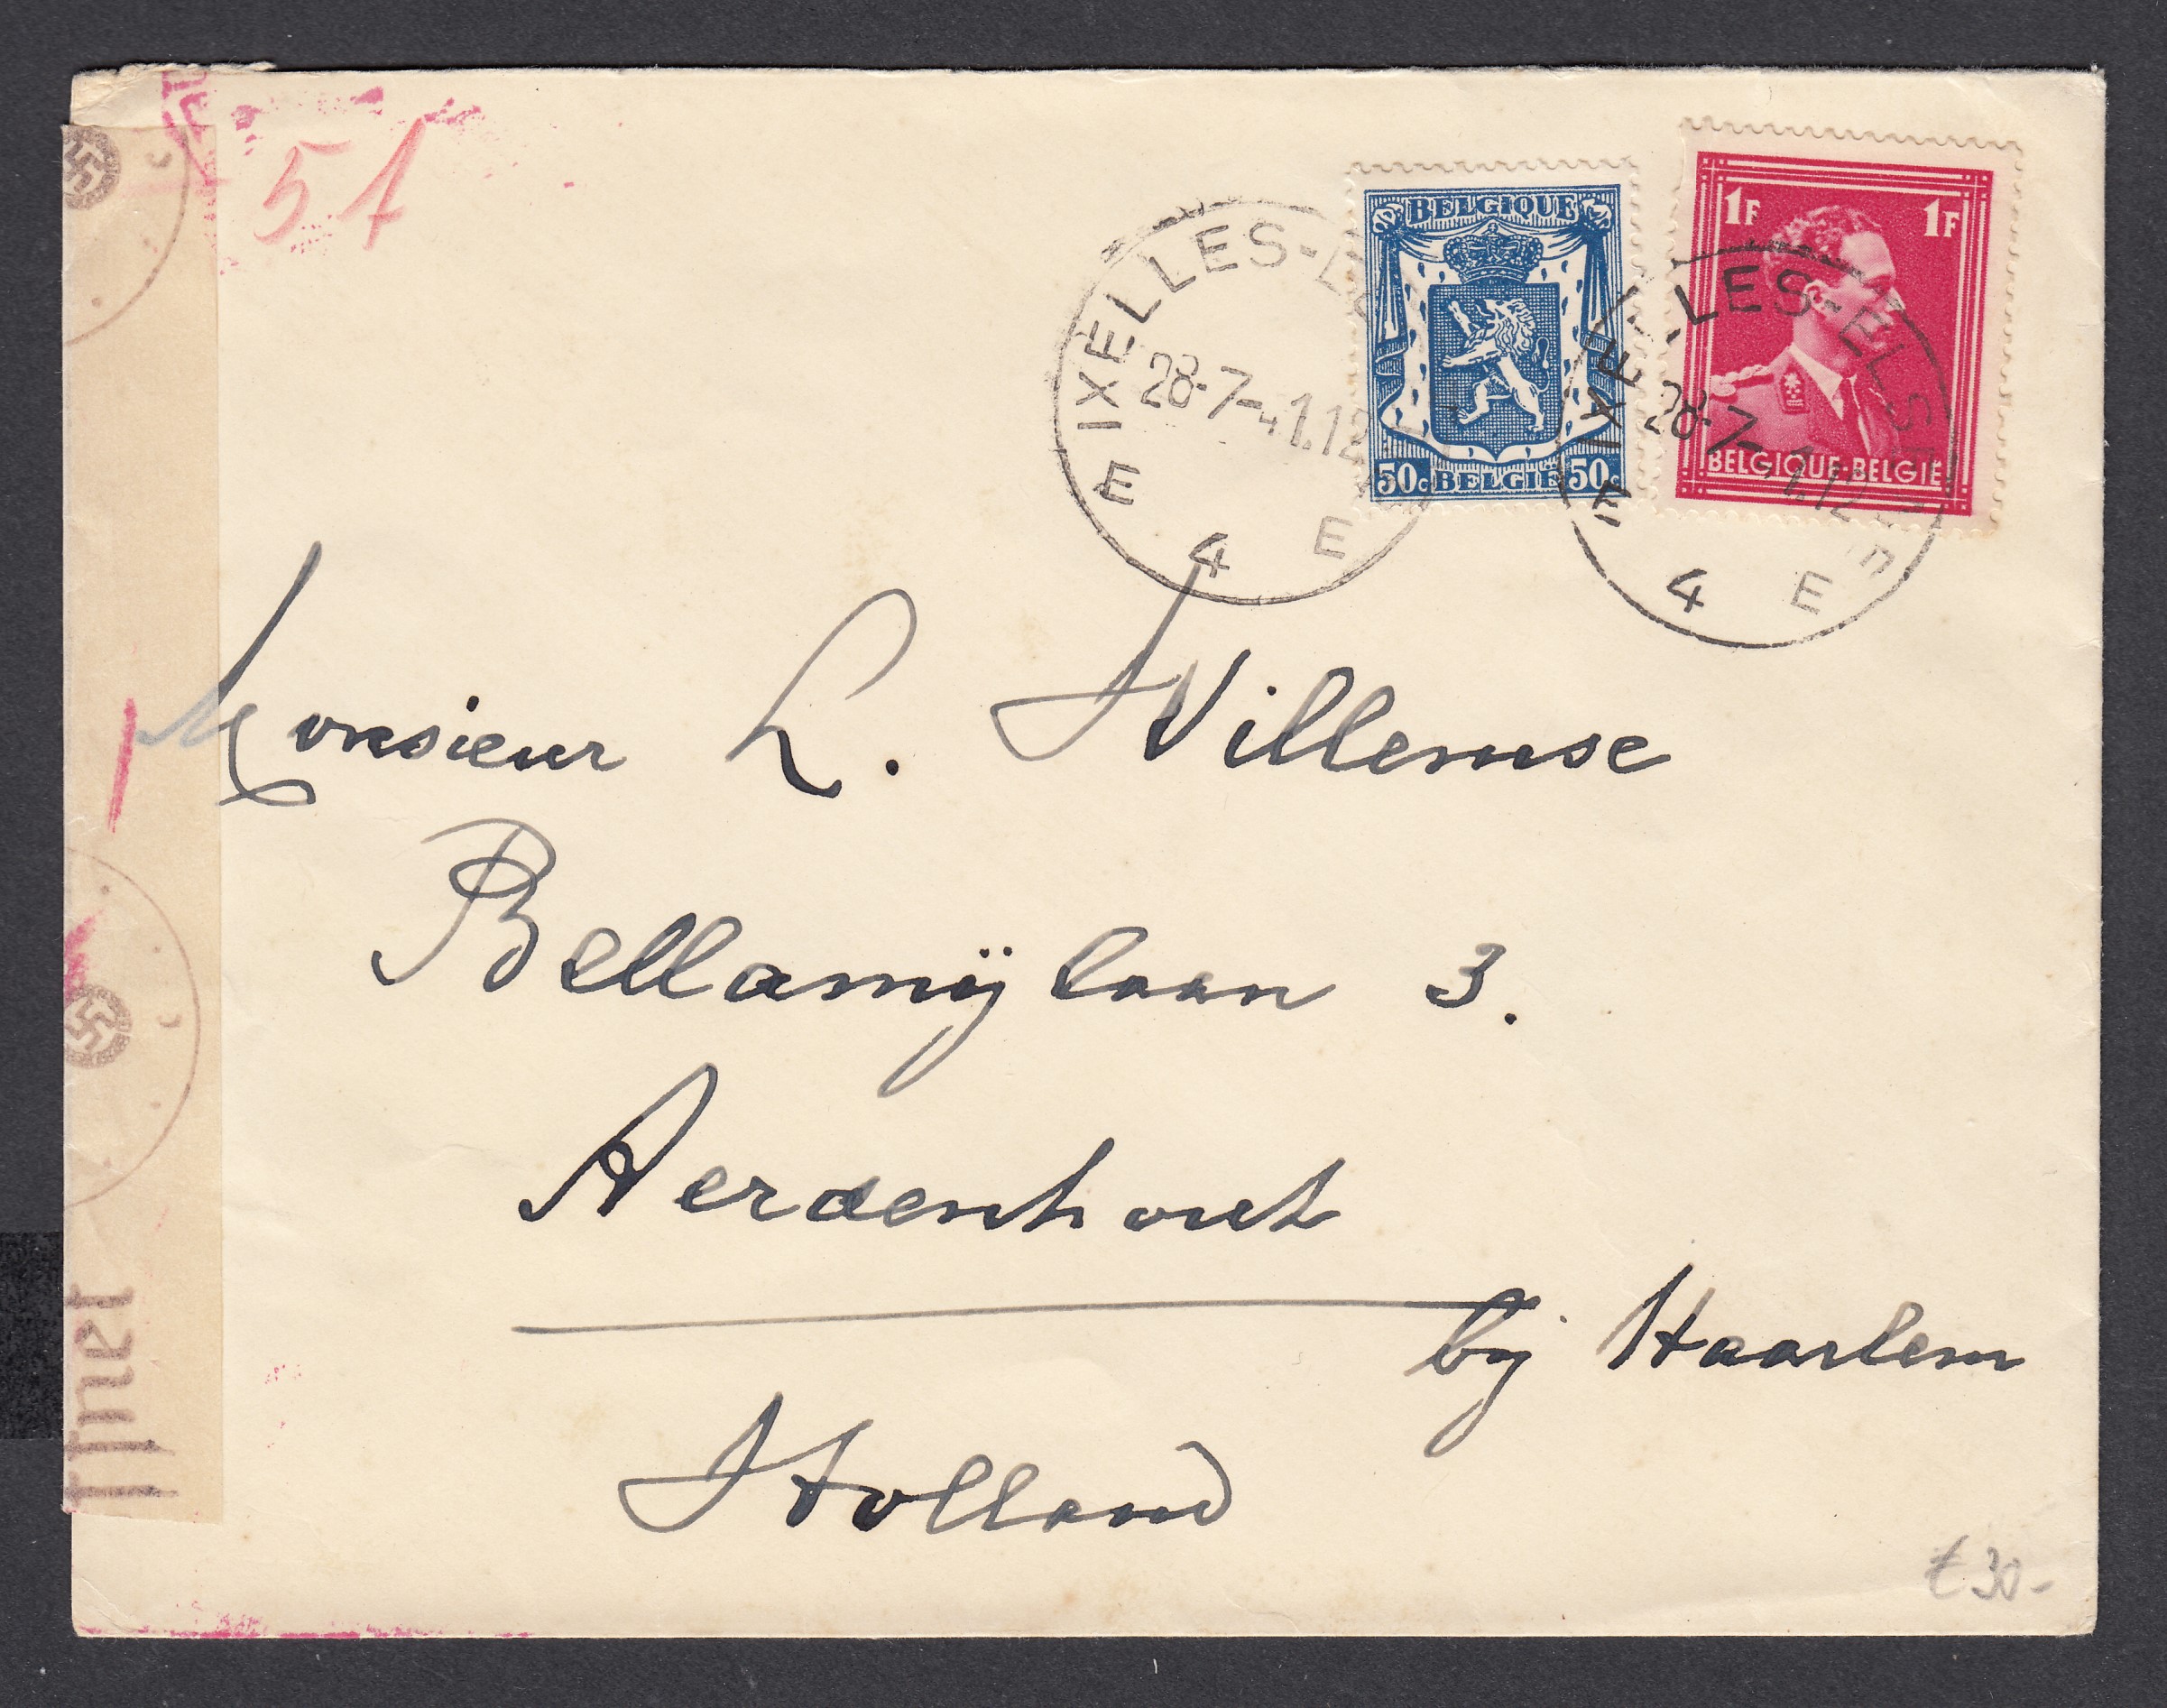 54
BELGIQUE
50c BELGIË 50c
1F 1F
BELGIQUE-BELGIË
IXELLES-EL
28-7-41.12
E 4 E
IXELLES-ELSENE
28-7-41.12
E 4 E
Monsieur L. Willemse
Bellamÿlaan 3.
Aerdenhout
bij Haarlem
Holland
€30-